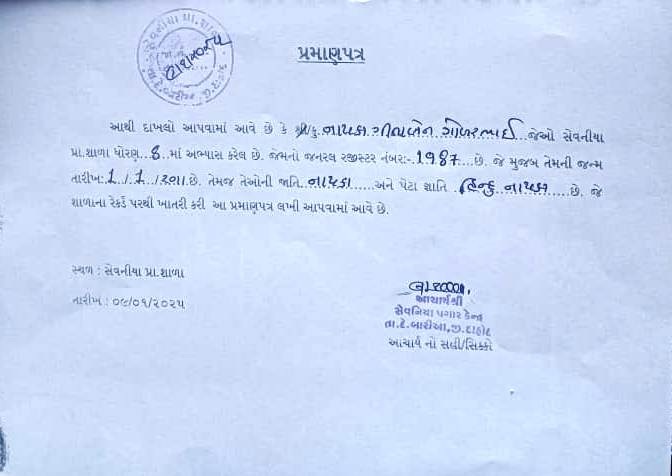 પ્રમાણપત્ર
આથી દાખલો આપવામાં આવે છે કે શ્રી/કુ. નાયકા ગીતાબેન ગોપાલભાઈ જેઓ સેવનીયા
પ્રા.શાળા ધોરણ..8..માં અભ્યાસ કરેલ છે. જેમનો જનરલ રજીસ્ટર નંબર:-.1987..છે. જે મુજબ તેમની જન્મ
તારીખ:1./.7./.2011.છે. તેમજ તેઓની જાતિ..નાયકા.....અને પેટા જ્ઞાતિ .હિન્દુ નાયકા.....છે. જે
શાળાના રેકર્ડ પરથી ખાતરી કરી આ પ્રમાણપત્ર લખી આપવામાં આવે છે.
સ્થળ : સેવનીયા પ્રા.શાળા
તારીખ : ૦૯/૦૧/૨૦૨૫
આચાર્યશ્રી
સેવનિયા પગાર કેન્દ્ર
તા.દે.બારીઆ,જી.દાહોદ
આચાર્ય નો સહી/સિક્કો